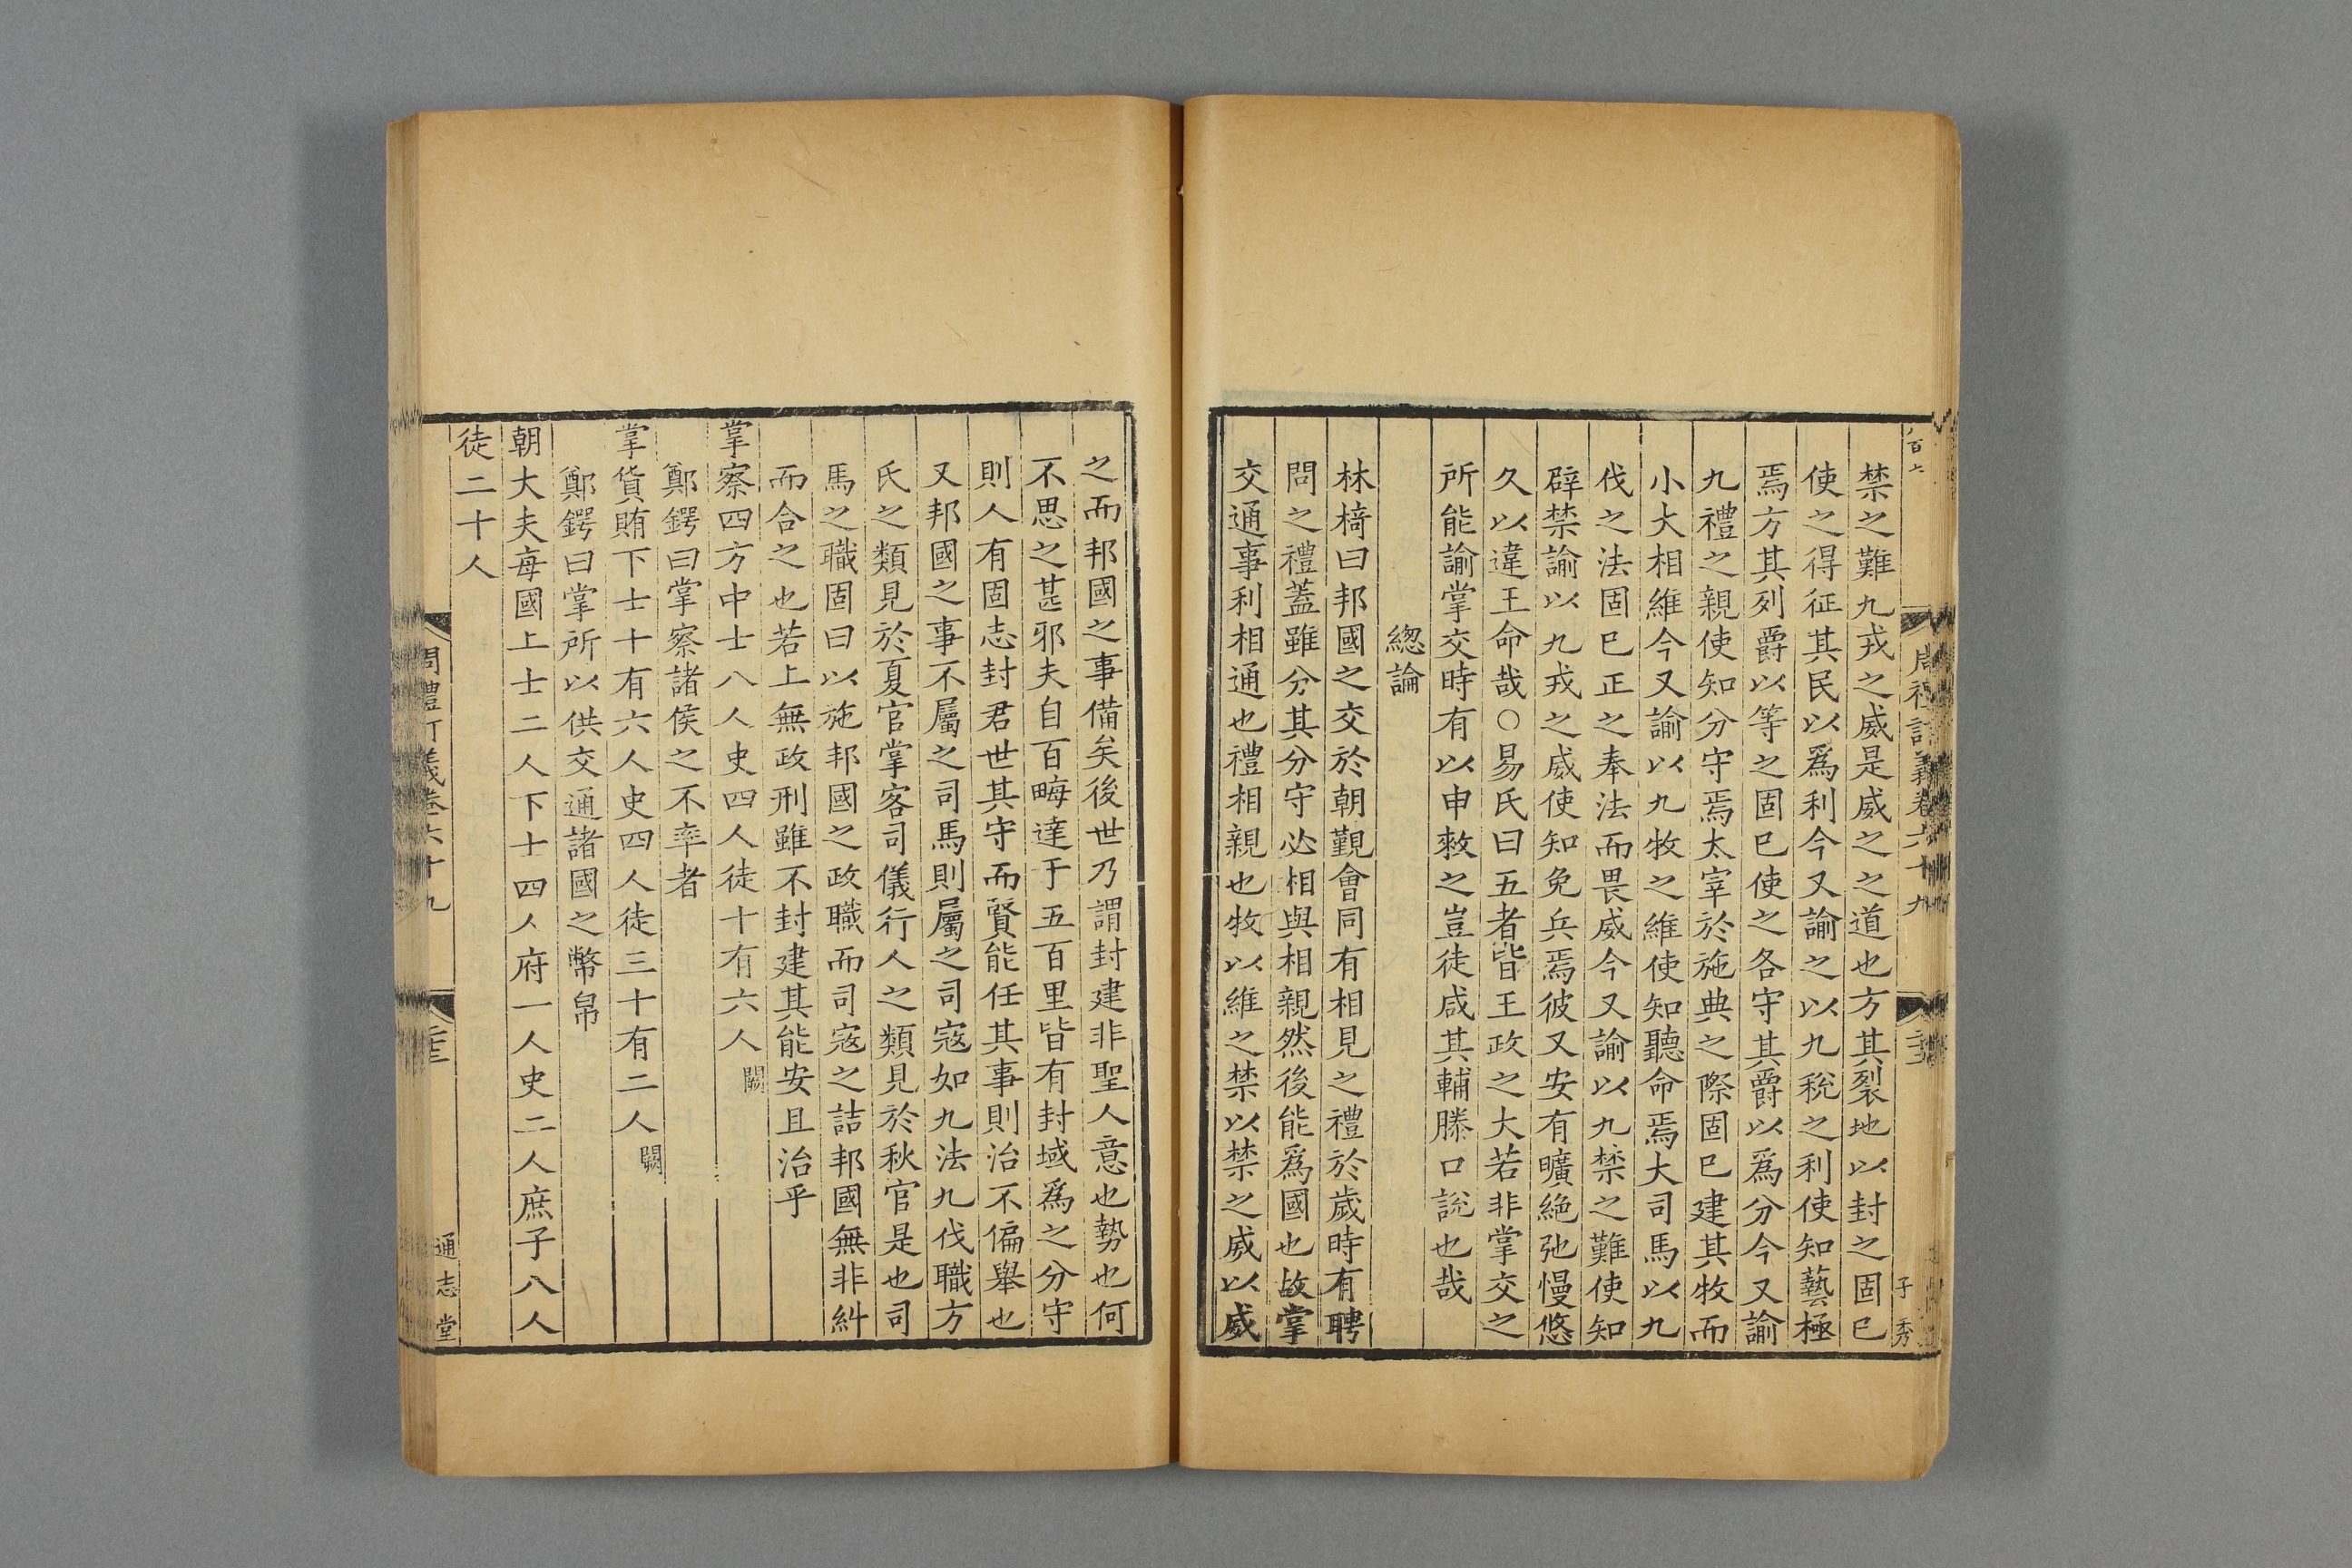 禁之難九戎之威是威之之道也方其裂地以封之固已
使之得征其民以爲利今又諭之以九稅之利使知藝極
焉方其列爵以等之固已使之各守其爵以爲分今又諭
九禮之親使知分守焉太宰於施典之際固已建其牧而
小大相維今又諭以九牧之維使知聽命焉大司馬以九
伐之法固已正之奉法而畏威今又諭以九禁之難使知
辟禁諭以九戎之威使知免兵焉彼又安有曠絶弛慢悠
久以違王命哉○易氏曰五者皆王政之大若非掌交之
所能諭掌交時有以申敕之豈徒咸其輔滕口說也哉
緫論
林椅曰邦國之交於朝覲會同有相見之禮於歲時有聘
問之禮蓋雖分其分守必相與相親然後能爲國也故掌
交通事利相通也禮相親也牧以維之禁以禁之威以威
之而邦國之事備矣後世乃謂封建非聖人意也勢也何
不思之甚邪夫自百畮達于五百里皆有封域爲之分守
則人有固志封君世其守而賢能任其事則治不偏舉也
又邦國之事不屬之司馬則屬之司寇如九法九伐職方
氏之類見於夏官掌客司儀行人之類見於秋官是也司
馬之職固曰以施邦國之政職而司寇之詰邦國無非糾
而合之也若上無政刑雖不封建其能安且治乎
掌察四方中士八人史四人徒十有六人闕
鄭鍔曰掌察諸侯之不率者
掌貨賄下士十有六人史四人徒三十有二人闕
鄭鍔曰掌所以供交通諸國之幣帛
朝大夫每國上士二人下士四人府一人史二人庶子八人
徒二十人
周禮訂義卷六十九
通志堂